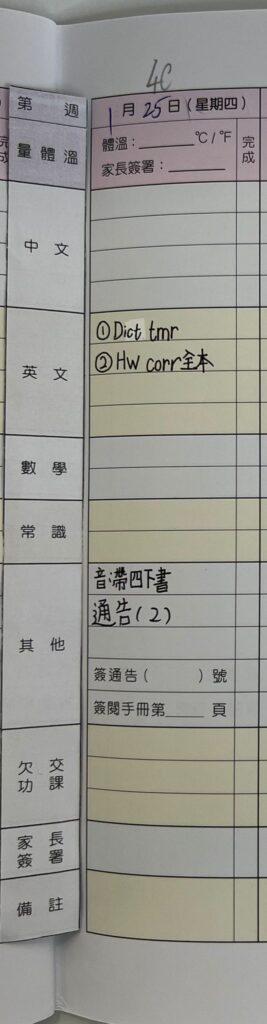 4C
第 週
1月25日(星期四)
量體溫
體溫：______℃/℉
家長簽署：______
完成
中文
英文
① Dict tmr
② HW corr全本
數學
常識
其他
音:帶四下書
通告(2)
簽通告( )號
簽閱手冊第____頁
欠交功課
家長簽署
備註